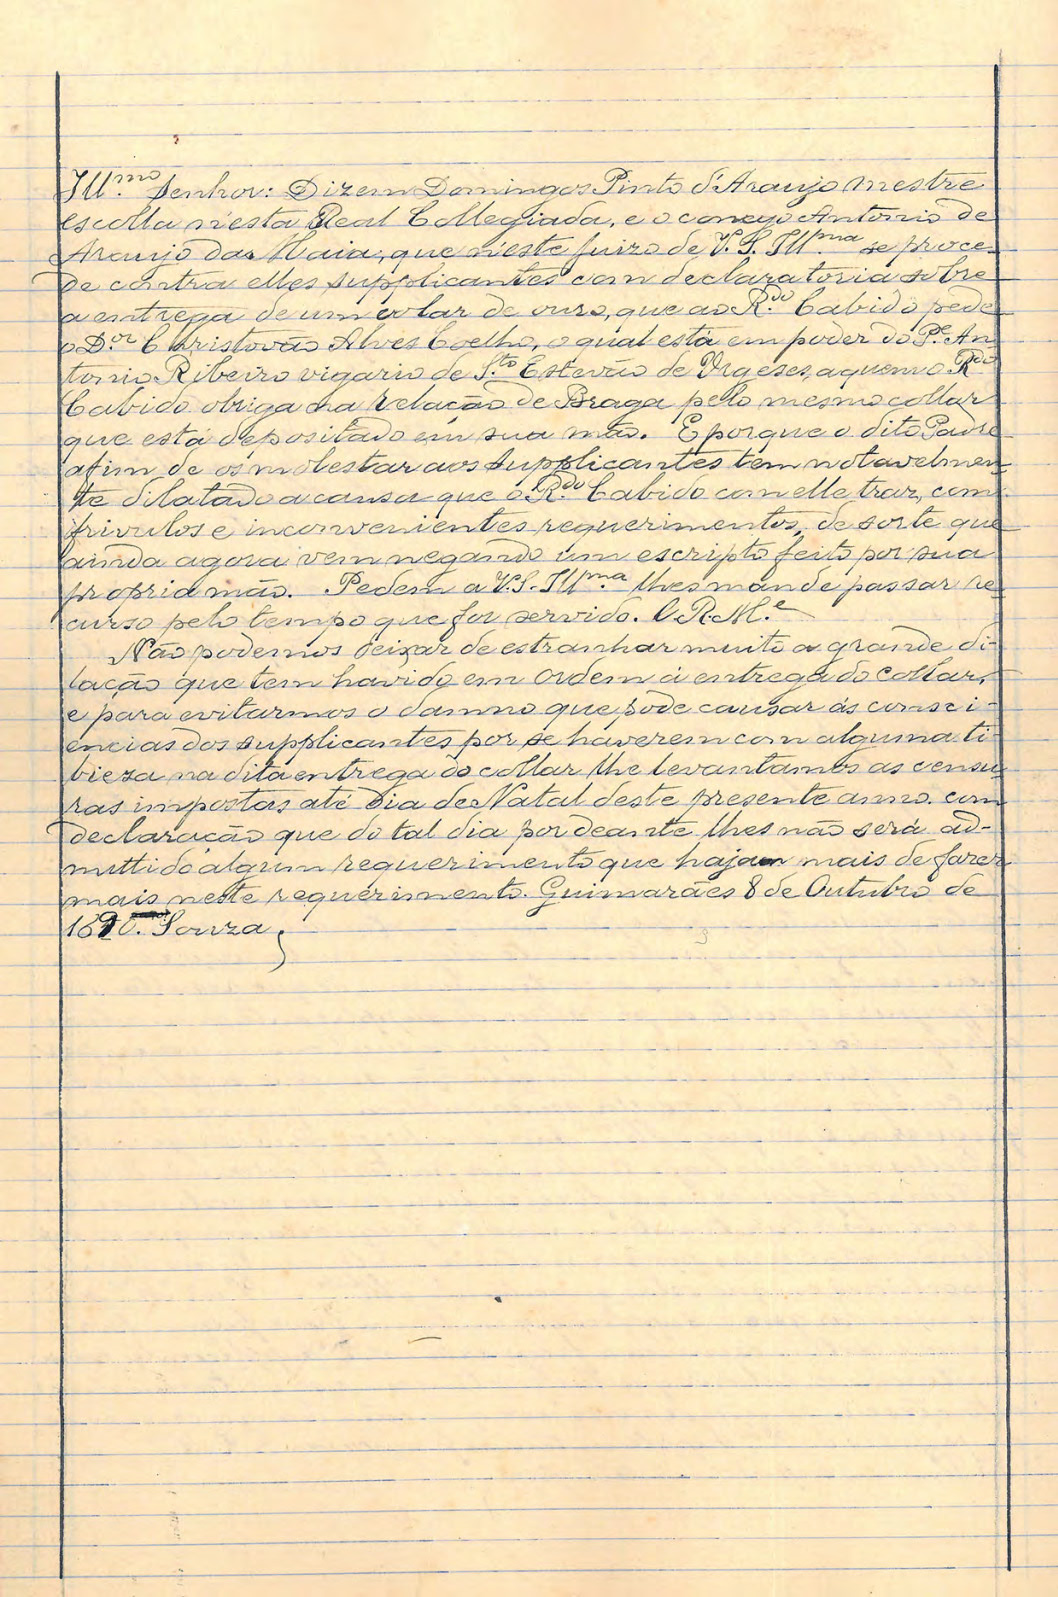 Ill.mo Senhor: Dizem Domingos Pinto d'Araujo mestre
escolla n'esta Real Collegiada, e o conego Antonio de
Araujo da Maia, que n'este juizo de V. S. Ill.ma se proce-
de contra elles supplicantes com declaratoria sobre
a entrega de um colar de ouro, que ao R.do Cabido pede
o D.or Christovão Alves Coelho, o qual está em poder do P.e An
tonio Ribeiro vigario de S.to Estevão de Urgeses, a quem o R.do
Cabido obriga na relação de Braga pelo mesmo collar
que está depositado em sua mão. E porque o dito Padre
afim de os molestar aos supplicantes tem notavelmen-
te dilatado a causa que o R.do Cabido com elle traz, com
frivulos e inconvenientes requerimentos, de sorte que
ainda agora vem negando um escripto feito por sua
propria mão. Pedem a V. S. Ill.ma lhes mande passar re
curso pelo tempo que for servido. E. R. M.e
Não podemos deixar de estranhar muito a grande di-
lação que tem havido em ordem á entrega do collar,
e para evitarmos o damno que pode causar ás consci-
encias dos supplicantes por se haverem com alguma ti-
bieza na dita entrega do collar lhe levantamos as censu
ras impostas até dia de Natal deste presente anno. com
declaração que do tal dia por deante lhes não será ad-
mittido algum requerimento que hajam mais de fazer
mais neste requerimento. Guimarães 8 de Outubro de
1690. Souza